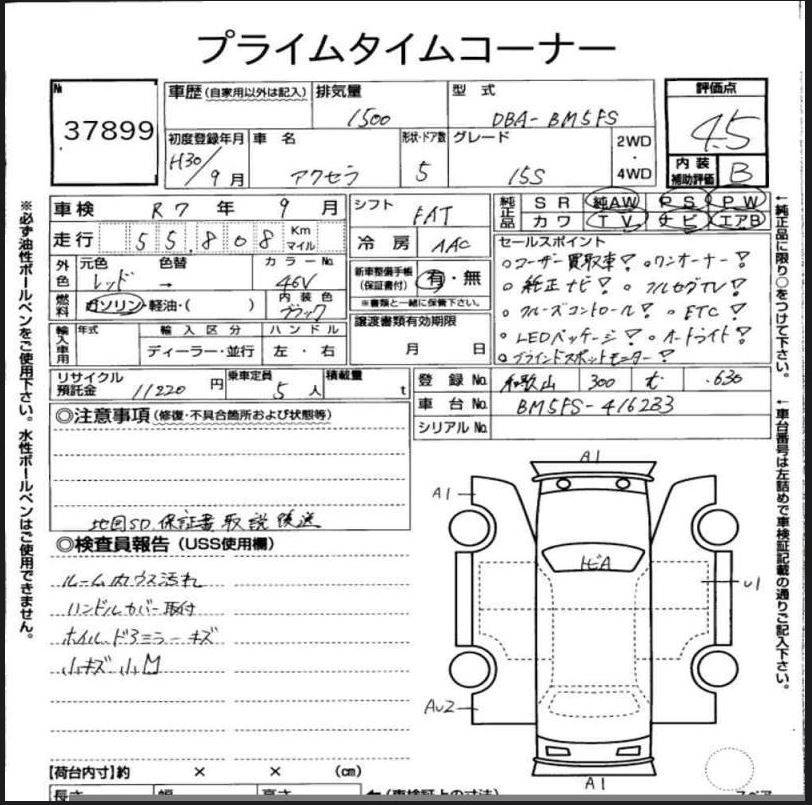 プライムタイムコーナー
№ 37899
車歴 (自家用以外は記入)
排気量 1500
型式 DBA-BM5FS
評価点 4.5
初度登録年月 H30/9月
車名 アクセラ
形状・ドア数 5
グレード 15S
2WD・4WD
内装補助評価 B
車検 R7年9月
シフト FAT
純正品 SR 純AW PS PW
カワ TV ナビ エアB
走行 55,808 Km マイル
冷房 AAC
セールスポイント
○ユーザー買取車! ○ワンオーナー!
○純正ナビ! ○フルセグTV!
○クルーズコントロール! ○ETC!
○LEDパッケージ! ○オートライト!
○ブラインドスポットモニター!
外色 元色 レッド 色替 → カラーNo. 46V
新車整備手帳(保証書付) 有・無
※書類と一緒に保管下さい。
燃料 ガソリン・軽油・( ) 内装色 ブラック
譲渡書類有効期限
月 日
輸入車用 年式 輸入区分 ハンドル
ディーラー・並行 左・右
リサイクル預託金 11220円 乗車定員 5人 積載量 t
登録No. 和歌山 300 む .630
車台No. BM5FS-416233
シリアルNo.
◎注意事項(修復・不具合箇所および状態等)
地図SD.保証書取説後送
◎検査員報告(USS使用欄)
ルーム内ウス汚れ
ハンドルカバー取付
ホイル、ドアミラーキズ
小キズ小凹
A1
A1
トビA
U1
AU2
A1
【荷台内寸】約 × × (cm)
長さ 幅 高さ ←(車検証上の寸法)
スペア
※必ず油性ボールペンをご使用下さい。水性ボールペンはご使用できません。
←純正品に限り○をつけて下さい。
←車台番号は左詰めで車検証記載の通りご記入下さい。